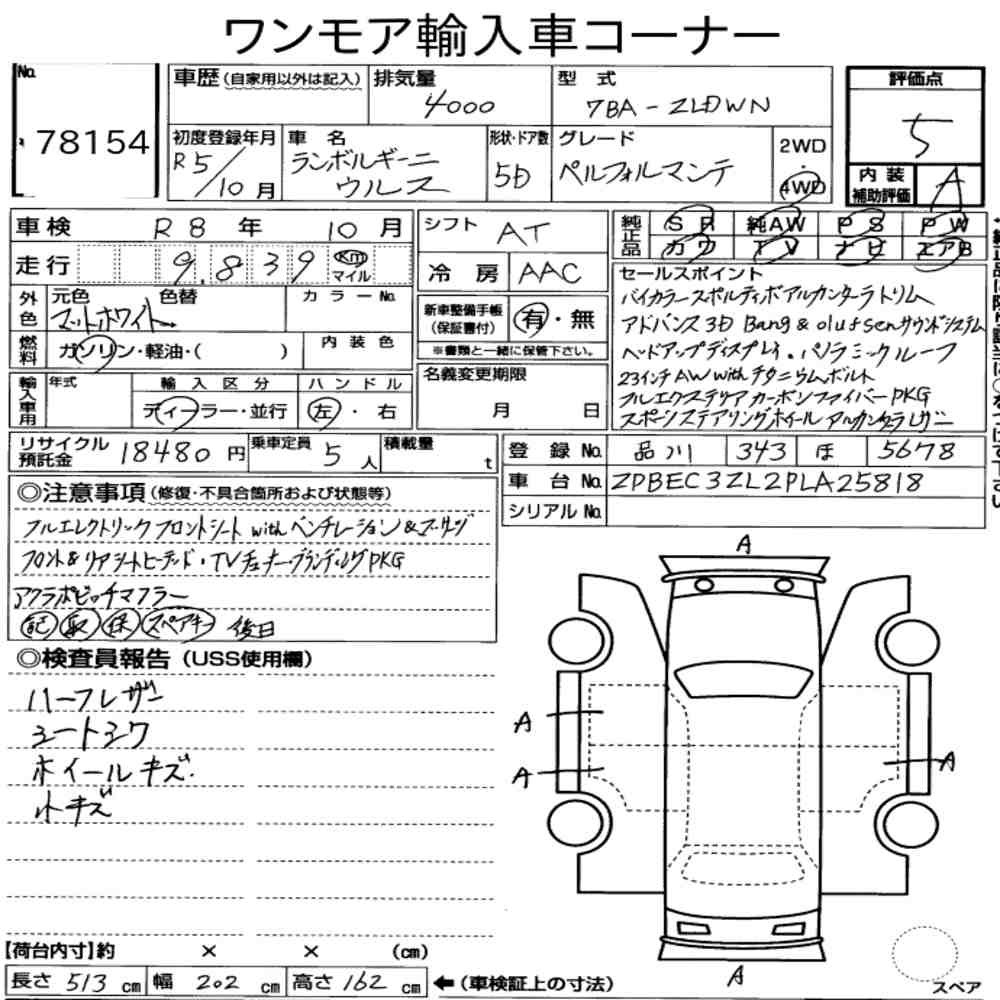 ワンモア輸入車コーナー
No.
78154
車歴 (自家用以外は記入)
排気量
4000
型 式
7BA-ZLDWN
評価点
5
初度登録年月
R5/10月
車 名
ランボルギーニ
ウルス
形状・ドア数
5D
グレード
ペルフォルマンテ
2WD
・
4WD
内 装
補助評価
A
車検 R8年 10月
走行 9.839 km マイル
シフト AT
冷房 AAC
純正品
SR 純AW PS PW
カワ TV ナビ エアB
外色
元色 色替
マットホワイト
カラーNo.
燃料
ガソリン・軽油・( )
内装色
新車整備手帳
(保証書付)
有・無
※書類と一緒に保管下さい。
セールスポイント
バイカラースポルティボアルカンターラトリム
アドバンス3D Bang & olufsenサウンドシステム
ヘッドアップディスプレイ・パノラミックルーフ
23インチAW withチタニウムボルト
フルエクステリアカーボンファイバーPKG
スポーツステアリングホイールアルカンタラレザー
輸入車用
年式
輸入区分
ディーラー・並行
ハンドル
左・右
名義変更期限
月 日
リサイクル
預託金
18480円
乗車定員
5人
積載量
t
登録No. 品川 343 ほ 5678
車台No. ZPBEC3ZL2PLA25818
シリアルNo.
◎注意事項(修復・不具合箇所および状態等)
フルエレクトリックフロントシートwithベンチレーション&マッサージ
フロント&リアシートヒーテッド・TVチューナー・ブランディングPKG
アクラポビッチマフラー
記 取 保 スペアキー 後日
◎検査員報告(USS使用欄)
ハーフレザー
シートシワ
ホイールキズ.
小キズ
A
A
A
A
A
【荷台内寸】約 × × (cm)
長さ 513 cm 幅 202 cm 高さ 162 cm ←(車検証上の寸法)
スペア